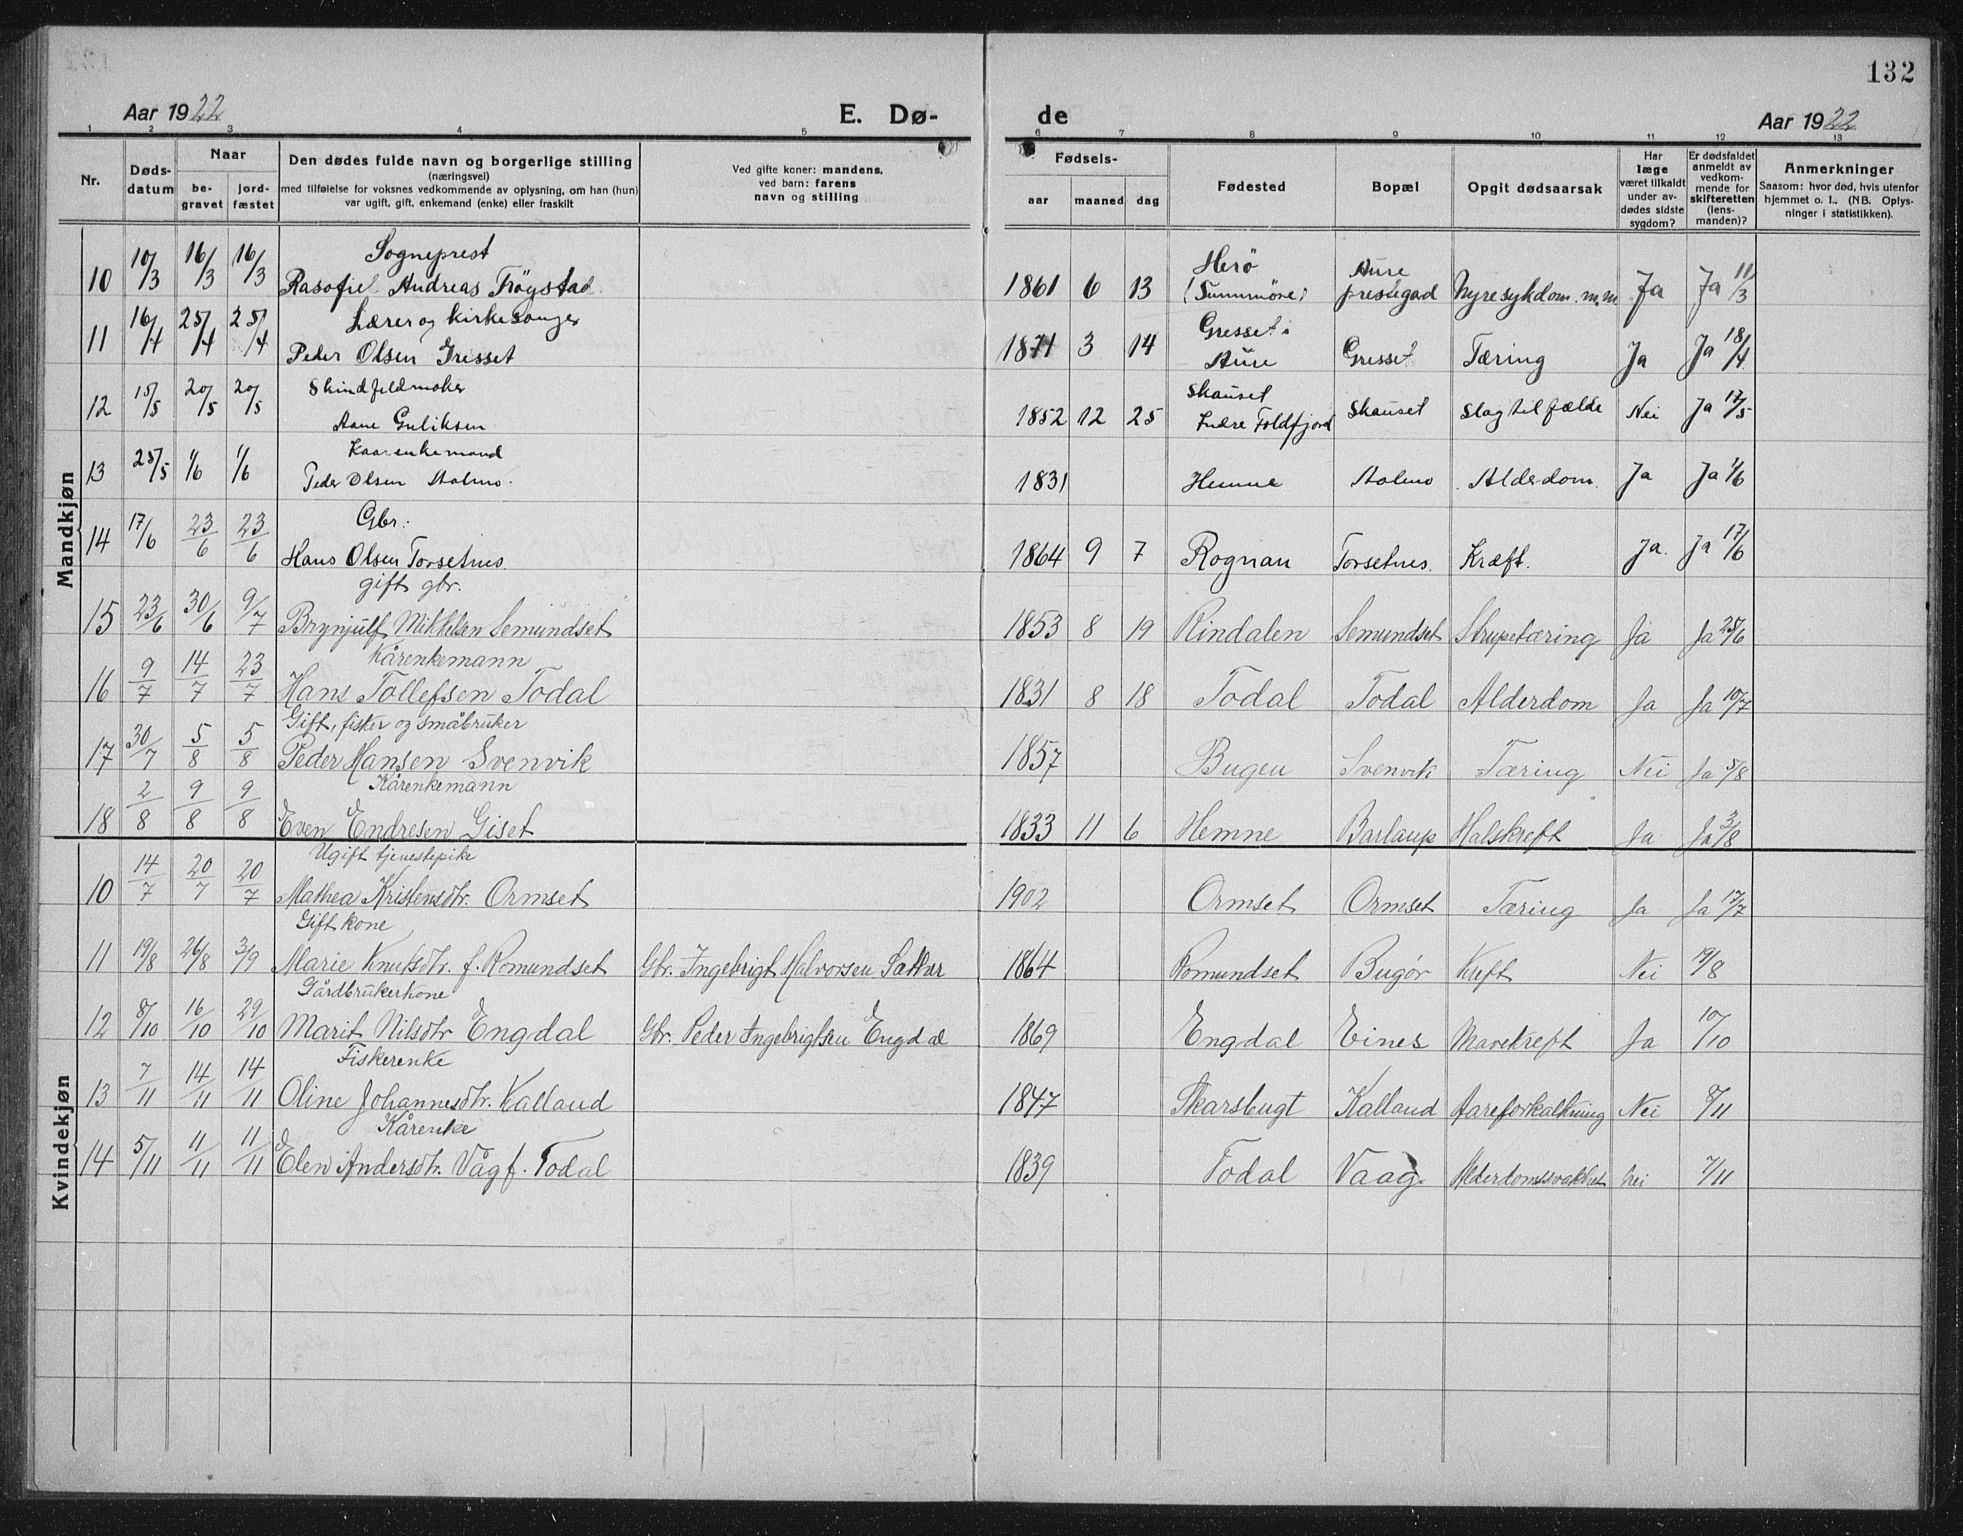 132
Aar 1922 E. Dø- de Aar 1922
1 2 3 4 5 6 7 8 9 10 11 12 13
Nr. Døds-datum Naar be-gravet jord-fæstet Den dødes fulde navn og borgerlige stilling (næringsvei) med tilføielse for voksnes vedkommende av oplysning, om han (hun) var ugift, gift, enkemand (enke) eller fraskilt Ved gifte koner: mandens, ved barn: farens navn og stilling Fødsels- aar maaned dag Fødested Bopæl Opgit dødsaarsak Har læge været tilkaldt under av-dødes sidste sygdom? Er dødsfaldet anmeldt av vedkom-mende for skifteretten (lens-manden)? Anmerkninger Saasom: hvor død, hvis utenfor hjemmet o. l., (NB. Oplys-ninger i statistikken).
Mandkjøn
10 10/3 16/3 16/3 Sogneprest
Rasofiel Andreas Trøystad 1861 6 13 Herø (Sunnmøre) Aure prestegad Nyresykdom. m.m. Ja Ja 11/3
11 16/4 25/4 25/4 Lærer og kirkesanger
Peder Olsen Gresset 1871 3 14 Gresset i Aure Gresset Tæring Ja Ja 18/4
12 15/5 20/5 20/5 Skindfeldmaker
Aane Guliksen 1852 12 25 Skauset Indre Foldfjord Skauset Slagtilfælde Nei Ja 17/5
13 25/5 1/6 1/6 Kaarenkemand
Peder Olsen Aalmo. 1831 Hemne Aalmo Alderdom. Ja Ja 1/6
14 17/6 23/6 23/6 Gbr.
Hans Olsen Torsetnes. 1864 9 7 Rognan Torsetnes. Kræft. Ja. Ja 17/6
15 23/6 30/6 9/7 gift gbr.
Brynjulf Mikkelsen Semundset 1853 8 19 Rindalen Semundset Strupetæring Ja Ja 25/6
16 9/7 14/7 23/7 Kårenkemann
Hans Tollefsen Todal 1831 8 18 Todal Todal Alderdom Ja Ja 10/7
17 30/7 5/8 5/8 Gift, fisker og småbruker
Peder Hansen Svenvik 1857 Bugen Svenvik Tæring Nei Ja 5/8
18 2/8 9/8 9/8 Kårenkemann
Even Endresen Giset 1833 11 6 Hemne Barlaup Halskreft Ja Ja 3/8
Kvindekjøn
10 14/7 20/7 20/7 Ugift tjenestepike
Mathea Kristensdtr. Ormset 1902 Ormset Ormset Tæring Ja Ja 17/7
11 19/8 26/8 3/9 Gift kone
Marie Knutsdtr. f. Romundset Gbr. Ingebrigt Halvorsen Sæther 1864 Romundset Bugør Kreft Nei 19/8
12 8/10 16/10 29/10 Gårdbrukerkone
Marit Nilsdtr Engdal Gbr. Peder Ingebrigtsen Engdal 1869 Engdal Eines Mavekreft Ja 10/10
13 7/11 14/11 14/11 Fiskerenke
Oline Johannesdtr. Kalland 1847 Skarsbugt Kalland Aareforkalkning Nei 8/11
14 5/11 11/11 11/11 Kårenke
Elen Andersdtr. Våg f. Todal 1839 Todal Vaag. Alderdomssvakhet Nei 7/11